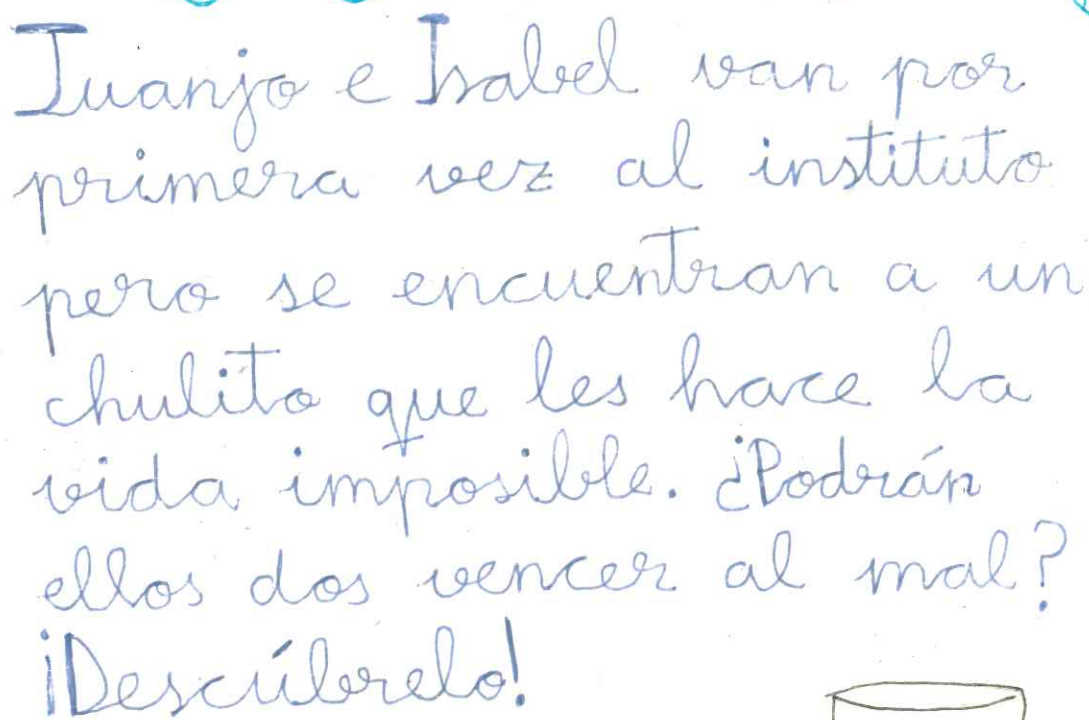 Juanjo e Isabel van por
primera vez al instituto
pero se encuentran a un
chulito que les hace la
vida imposible. ¿Podrán
ellos dos vencer al mal?
¡Descúbrelo!